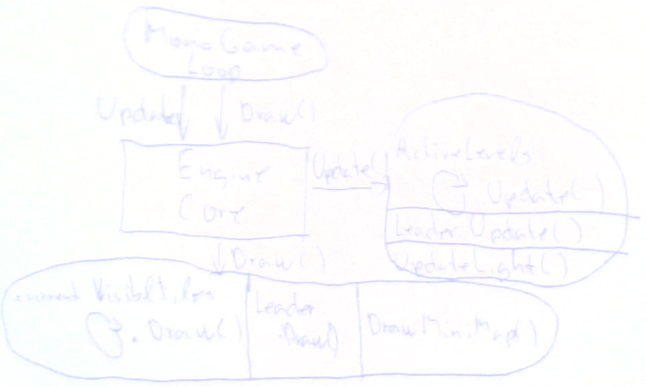 MonoGame
Loop
Update Draw()
Engine
Core
Update()
ActiveLevels
.Update()
Leader.Update()
UpdateLight()
Draw()
current
.Draw()
Leader
.Draw()
DrawMiniMap()